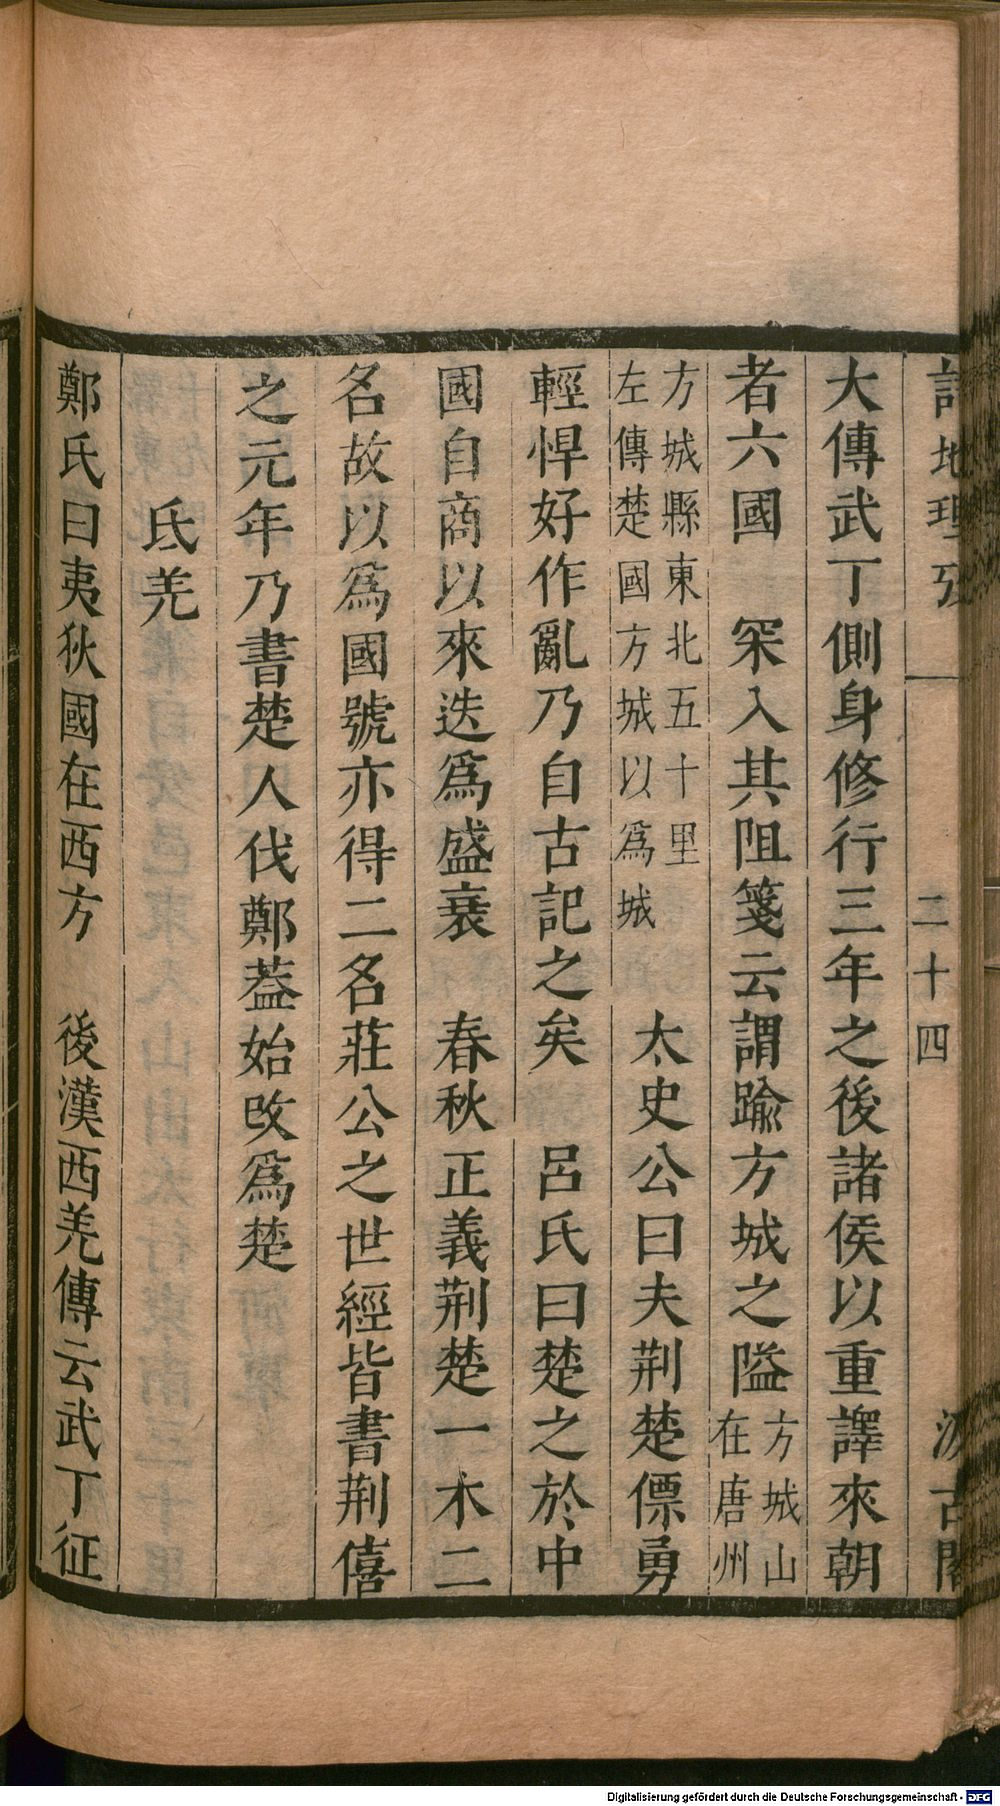 詩地理攷 二十四 汲古閣
大傳武丁側身修行三年之後諸侯以重譯來朝
者六國 罙入其阻箋云謂踰方城之隘方城山在唐州
方城縣東北五十里左傳楚國方城以為城 太史公曰夫荆楚僄勇
輕悍好作亂乃自古記之矣 呂氏曰楚之於中
國自商以來迭為盛衰 春秋正義荆楚一木二
名故以為國號亦得二名莊公之世經皆書荆僖
之元年乃書楚人伐鄭葢始改為楚
氐羌
鄭氏曰夷狄國在西方 後漢西羌傳云武丁征
Digitalisierung gefördert durch die Deutsche Forschungsgemeinschaft - DFG